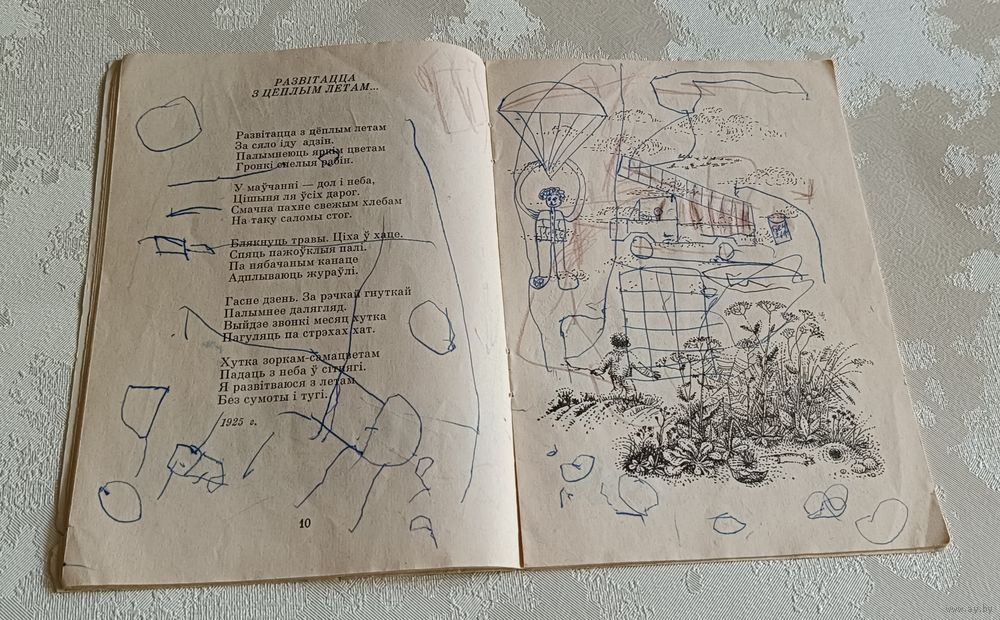 РАЗВІТАЦЦА
З ЦЁПЛЫМ ЛЕТАМ...
Развітацца з цёплым летам
За сяло іду адзін.
Палымнеюць яркім цветам
Гронкі спелыя рабін.
У маўчанні — дол і неба,
Цішыня ля ўсіх дарог.
Смачна пахне свежым хлебам
На таку саломы стог.
Блякнуць травы. Ціха ў хаце.
Спяць пажоўклыя палі.
Па нябачным канаце
Адплываюць жураўлі.
Гасне дзень. За рэчкай гнуткай
Палымнее далягляд.
Выйдзе звонкі месяц хутка
Пагуляць па стрэхах хат.
Хутка зоркам-самацветам
Падаць з неба ў сітнягі.
Я развітваюся з летам
Без сумоты і тугі.
1925 г.
10
www.ay.by